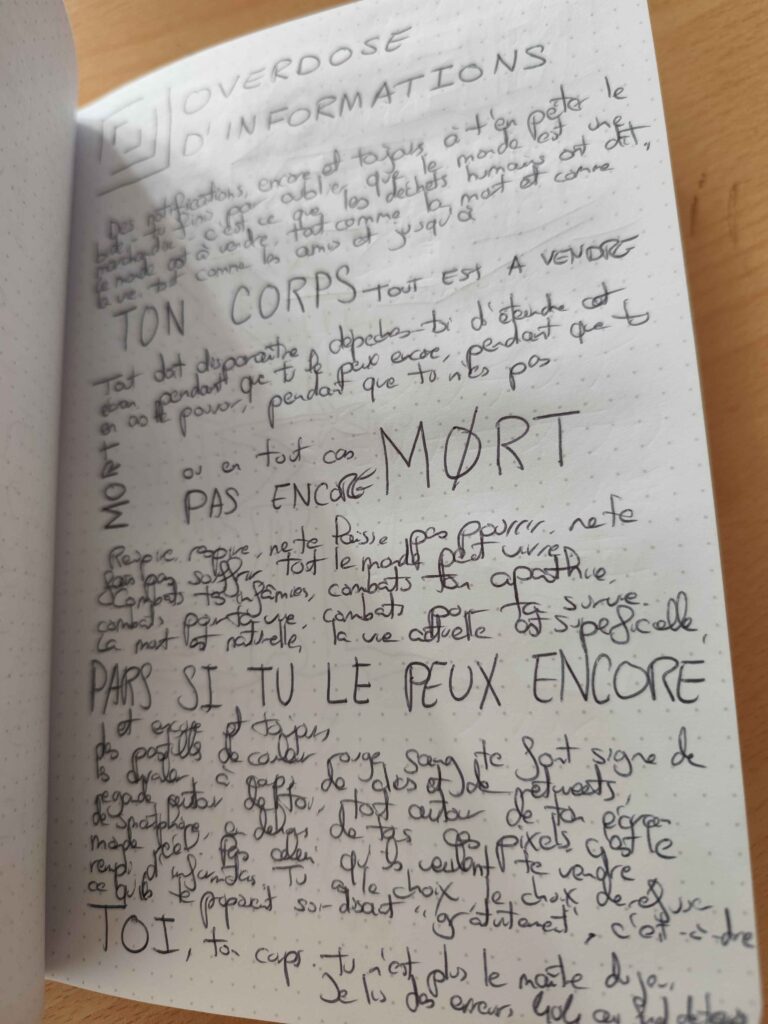 OVERDOSE
D'INFORMATIONS
Des notifications, encore et toujours, à t'en péter le
bide, tu finis par oublier que le monde est une
marchandise : c'est ce que les déchets humains ont dit,
le monde est à vendre, tout comme la mort et comme
la vie, tout comme les amis et jusqu'à
TON CORPS TOUT EST A VENDRE
Tout doit disparaître, dépêches-toi d'éteindre cet
écran pendant que tu le peux encore, pendant que tu
en as le pouvoir, pendant que tu n'es pas
MORT
ou en tout cas
PAS ENCORE MØRT
Respire, respire, ne te laisse pas pourrir, ne te
fais pas souffrir, tout le monde peut vivre,
Combats tes infâmies, combats ton apathie,
combats pour ta vie, combats pour ta survie.
La mort est naturelle, la vie actuelle est superficielle,
PARS SI TU LE PEUX ENCORE
et encore et toujours,
des pastilles de couleur rouge sang te font signe de
les dévaler, à coups de likes et de retweets,
regarde autour de toi, tout autour de ton écran
de smartphone, en dehors de tous ces pixels c'est le
monde réel. Pas celui qu'ils veulent te vendre
rempli d'infamies. Tu as le choix, le choix de refuser
ce qu'ils te proposent soi-disant "gratuitement", c'est-à-dire
TOI, ton corps. tu n'est plus le maître du jeu.
Je lis des erreurs